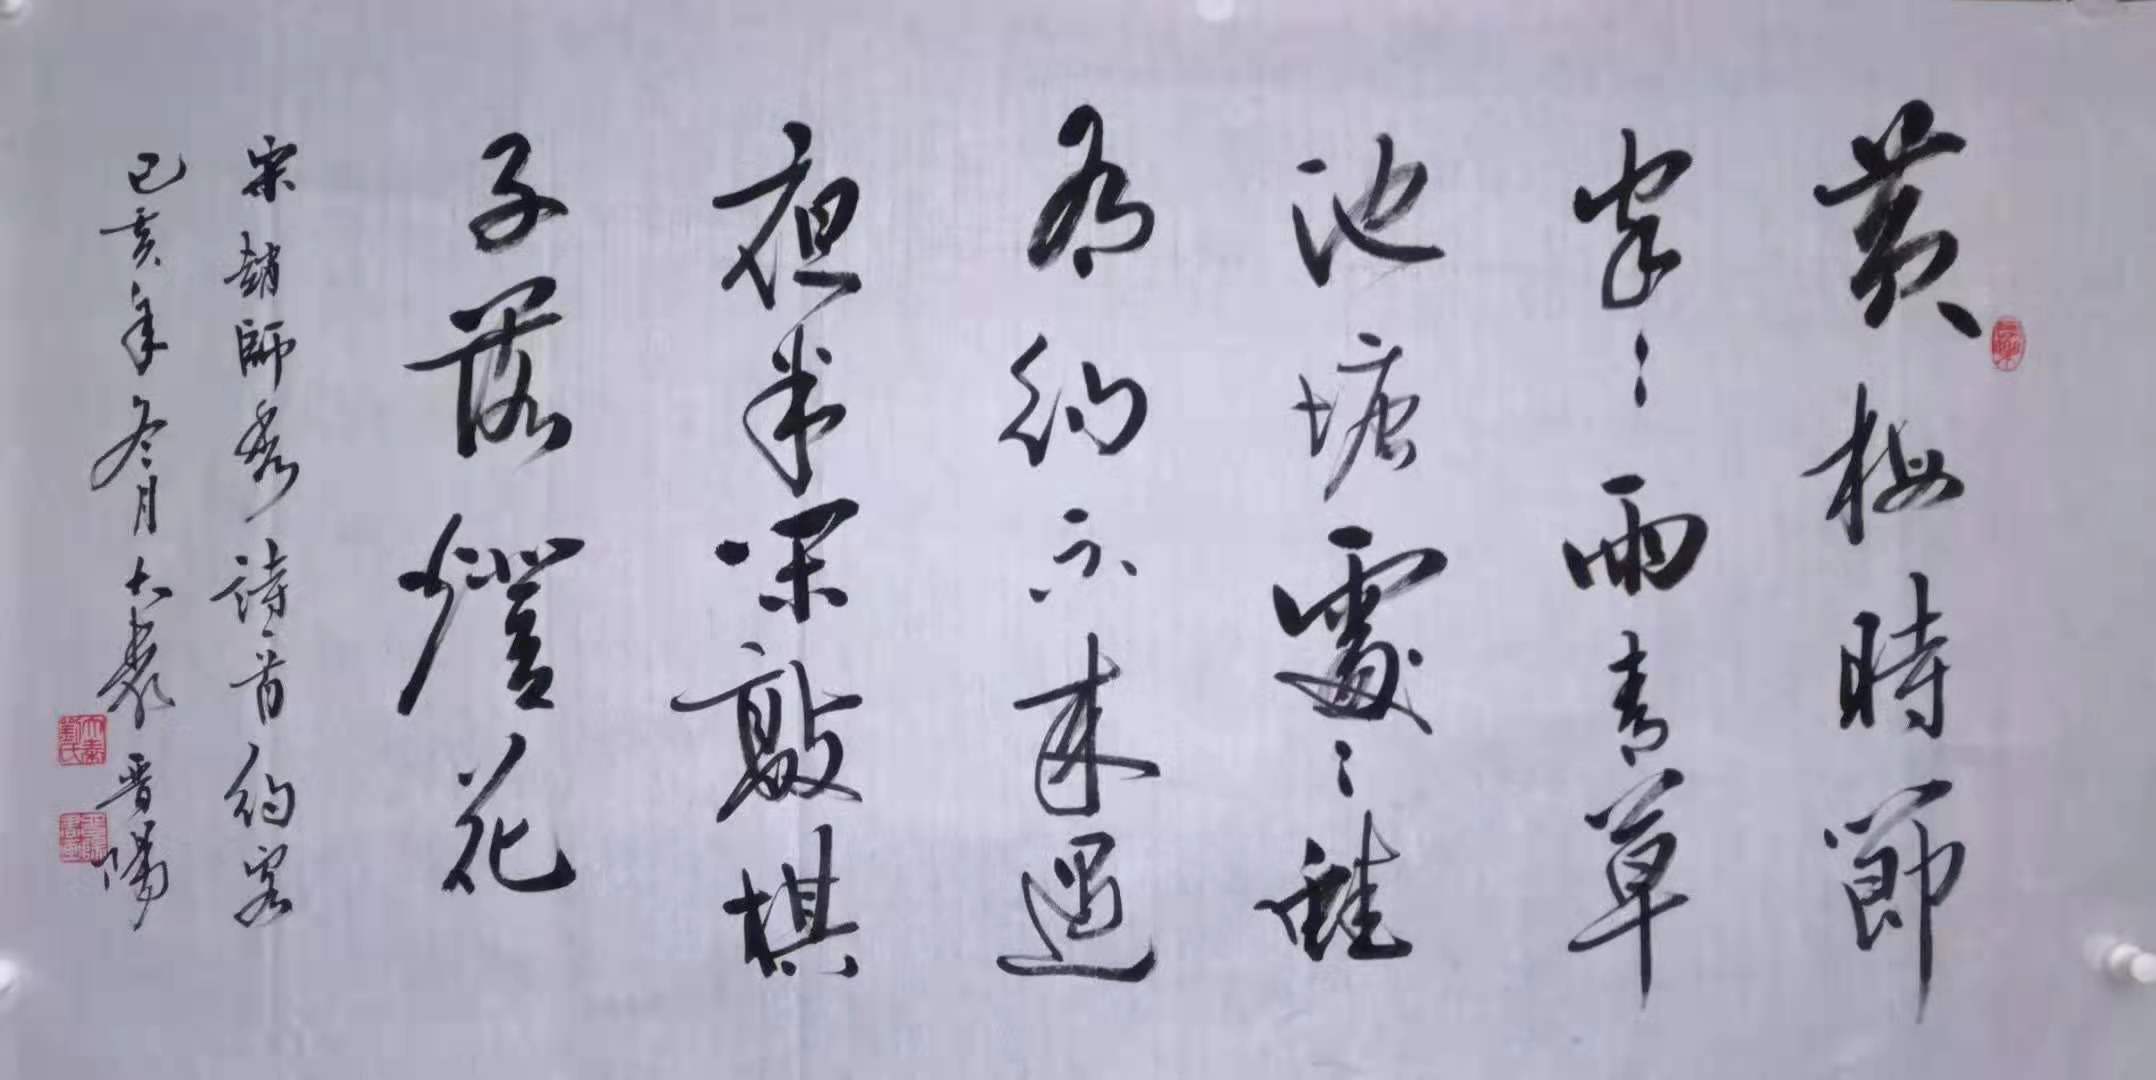 黄梅時節
家〻雨青草
池塘處〻蛙
有約不来過
夜半闲敲棋
子落燈花
宋趙師秀詩一首約客
己亥年冬月大秦晋陽
大秦劉氏